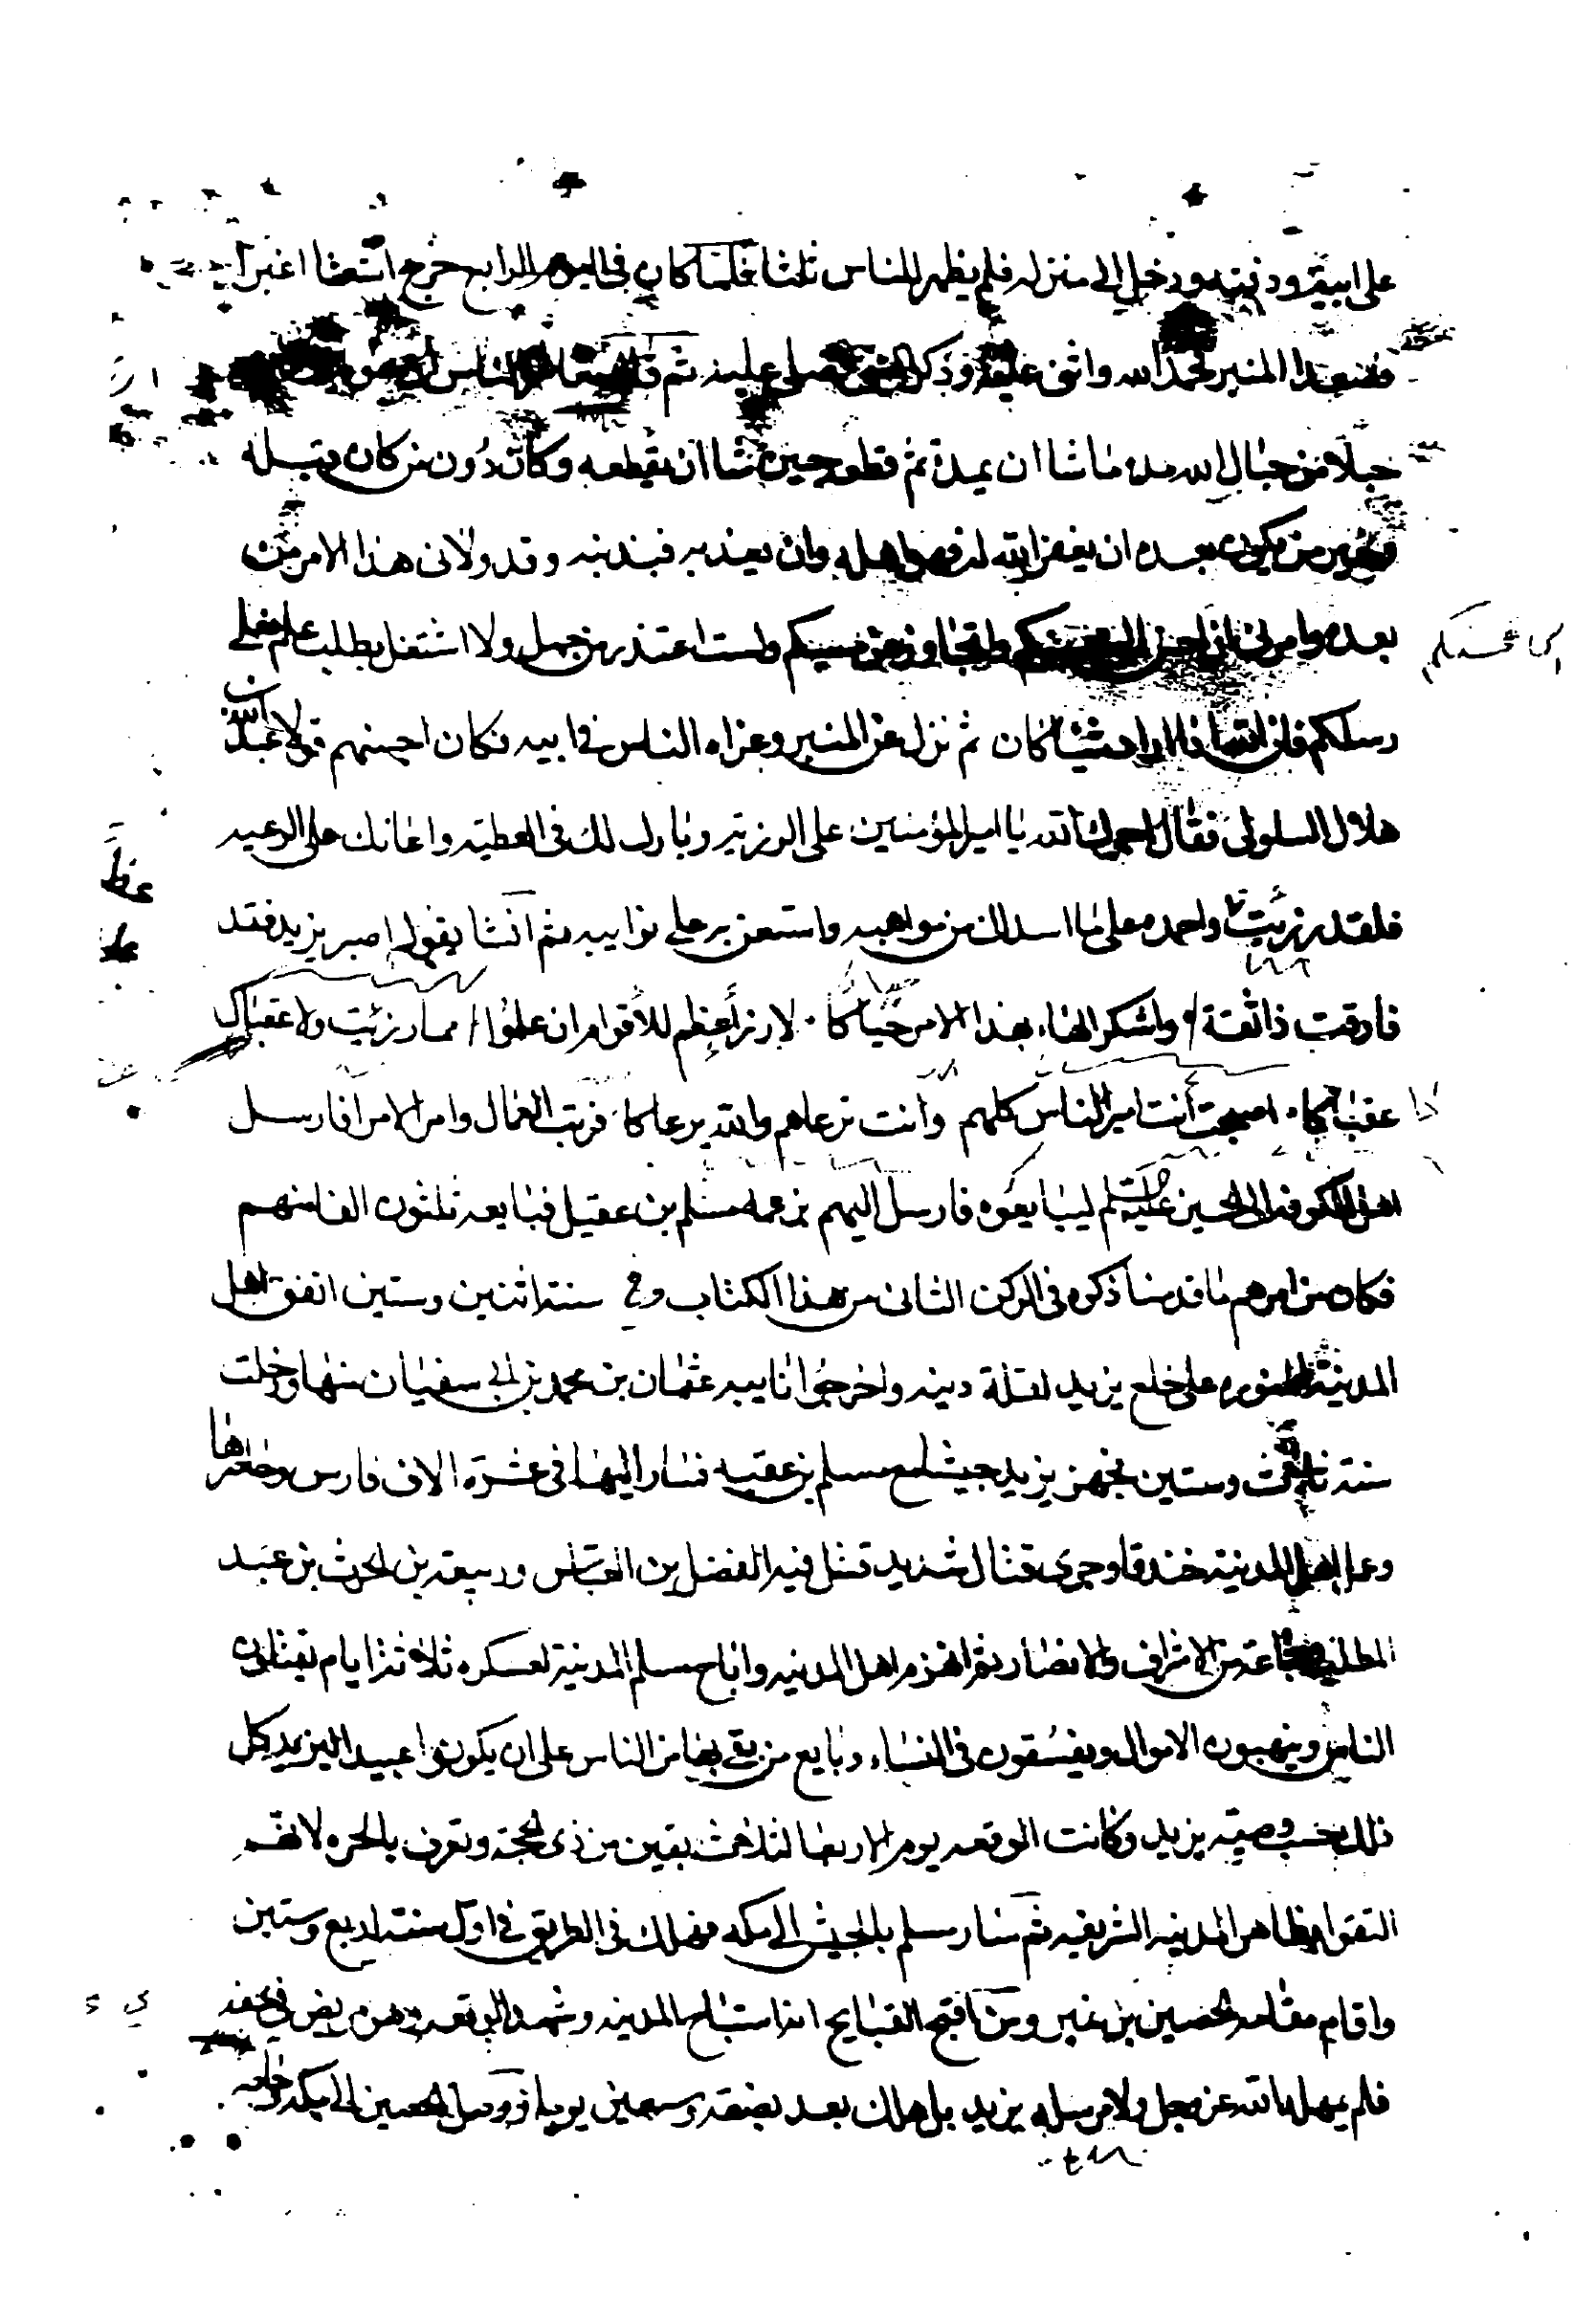 على ابيه ودفنه ودخل الى منزله فلم يظهر للناس ثلثا فلما كان فى اليوم الرابع خرج اشعثا اغبرا
فصعد المنبر فحمد الله واثنى عليه وذكر النبى فصلى عليه ثم قال الناس
حبلا من حبال الله مده ما شا ان يمده ثم قطعه حين شا ان يقطعه وكان دون من كان قبله
وخير من يكون بعده ان يغفر الله له فهو اهله وان يعذبه فبذنبه وقد ولانى هذا الامر من
بعده وامرنى ان احسن الى محسنكم واتجاوز عن مسيكم ولست اعتذر من جهل ولا اشتغل بطلب علم فعلى
الى محسنكم
رسلكم فان الله اذا اراد شيئا كان ثم نزل عن المنبر وعزاه الناس فى ابيه فكان احسنهم قولا عبد الله بن
هلال السلولى فقال اجرك الله يا امير المؤمنين على الرزية وبارك لك فى العطية واعانك على الرعيه
فلقد رزيت واحمده على ما اسداك من مواهبه واستعن به على نوايبه ثم انشا يقول اصبر يزيد فقد
فارقت ذا ثقة واشكر الهاء بهذا الامر حباكا لا رزأ اعظم للاقوام ان علموا مما رزئت ولا عقبى ك
عقباكا اصبحت انت امير الناس كلهم وانت ترعاهم والله يرعاكا فرتب العمال وامر الامرا فارسل
اهل الكوفه الى الحسين عليه السلم ليبايعوه فارسل اليهم بن عمه مسلم بن عقيل فبايعه ثلثون الفا منهم
فكان من امرهم ما قدمنا ذكره فى الركن الثانى من هذا الكتاب وفى سنة اثنين وستين اتفق اهل
المدينة المنوره على خلع يزيد لقلة دينه واخرجوا نايبه عثمان بن محمد بن ابى سفيان منها ودخلت
سنة ثلاث وستين فجهز يزيد جيشا مع مسلم بن عقبه فسار اليها فى عشرة الاف فارس وحاصرها
وعمل اهل المدينة خندقا وجرى قتال شديد قتل فيه الفضل بن العباس وربيعه بن الحرث بن عبد
المطلب وجماعة من الاشراف والانصار ثم انهزم اهل المدينه واباح مسلم المدينة لعسكره ثلاثة ايام يقتلون
الناس وينهبون الاموال ويفسقون فى النساء وبايع من بقى بها من الناس على ان يكونوا عبيدا ليزيد كل
ذلك حسب وصية يزيد وكانت الوقعه يوم الاربعا لثلاث بقين من ذى الحجة وتعرف بالحره لانهم
التقوا بظاهر المدينه الشريفه ثم سار مسلم بالجيش الى مكه فهلك فى الطريق فى اول سنة اربع وستين
واقام مقامه الحصين بن نمير ومن اقبح القبايح انه استباح المدينه وشهد الوقعه وهو مريض فى محفه
فلم يمهله الله عز وجل ولا مرسله يزيد بل هلك بعد بضعة وسبعين يوما ووصل الحصين الى مكه وحاصر